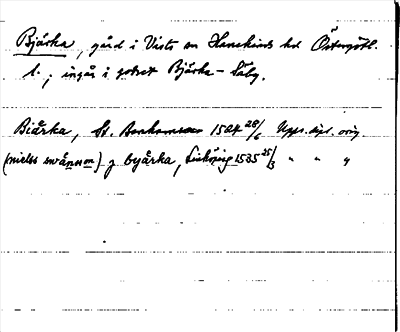 Bjärka, gård i Vists sn Hanekinds hd Östergötl.
l.; ingår i godset Bjärka-Säby.
Biärka, St. 1524 28/6 Upps. dipl. orig.
(nielss swånson) y byärka, Linköping 1535 25/3 " " "